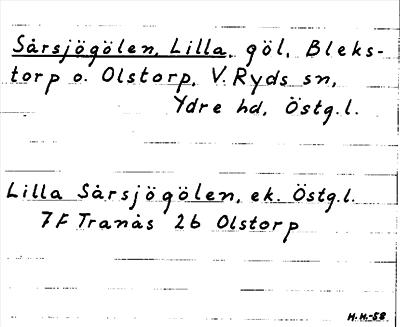 Sårsjögölen, Lilla, göl, Bleks-
torp o. Olstorp, V. Ryds sn,
Ydre hd, Östg.l.
Lilla Sårsjögölen, ek. Östg.l.
7F Tranås 2b Olstorp
H.H.-58